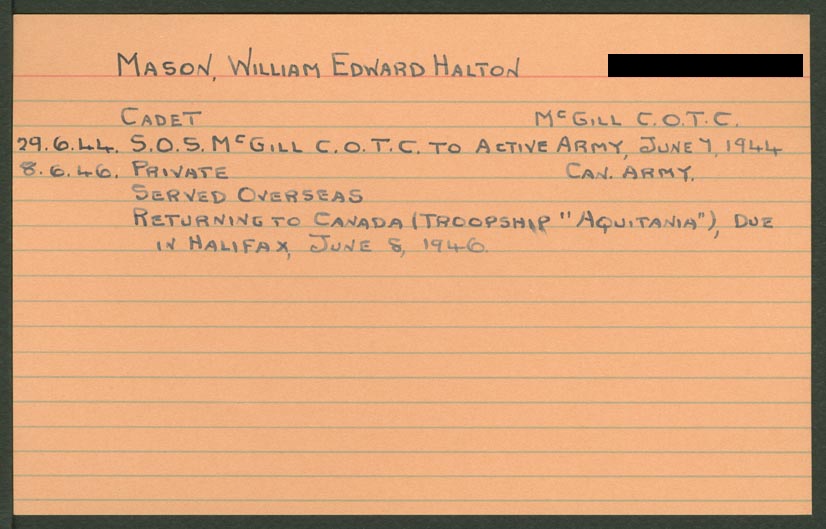 MASON, WILLIAM EDWARD HALTON
CADET McGILL C.O.T.C.
29.6.44. S.O.S. McGILL C.O.T.C. TO ACTIVE ARMY, JUNE 7, 1944
8.6.46. PRIVATE CAN. ARMY.
SERVED OVERSEAS
RETURNING TO CANADA (TROOPSHIP "AQUITANIA"), DUE
IN HALIFAX, JUNE 8, 1946.